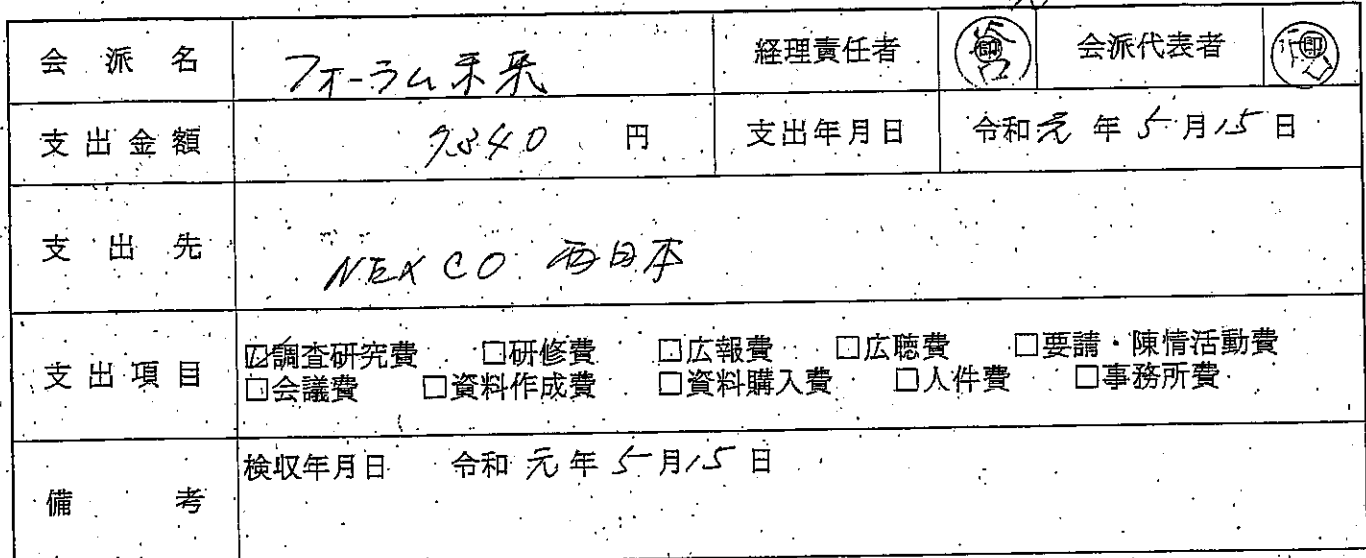 会派名 フォーラム未来 経理責任者 印 会派代表者 印
支出金額 7,840 円 支出年月日 令和元年5月15日
支出先 NEXCO 西日本
支出項目 ☑調査研究費 □研修費 □広報費 □広聴費 □要請・陳情活動費
□会議費 □資料作成費 □資料購入費 □人件費 □事務所費
備考 検収年月日 令和元年5月15日